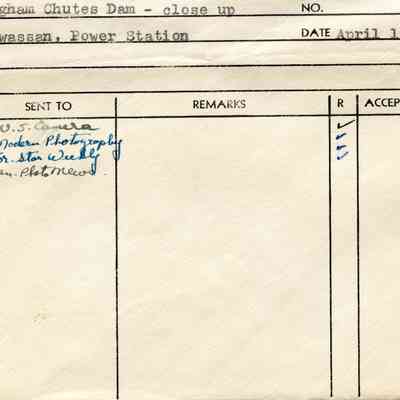 gham Chutes Dam - close up NO.
wassan, Power Station DATE April 1
SENT TO REMARKS R ACCEP
U.S. Camera
Modern Photography
or. Star Weekly
an. Photo News